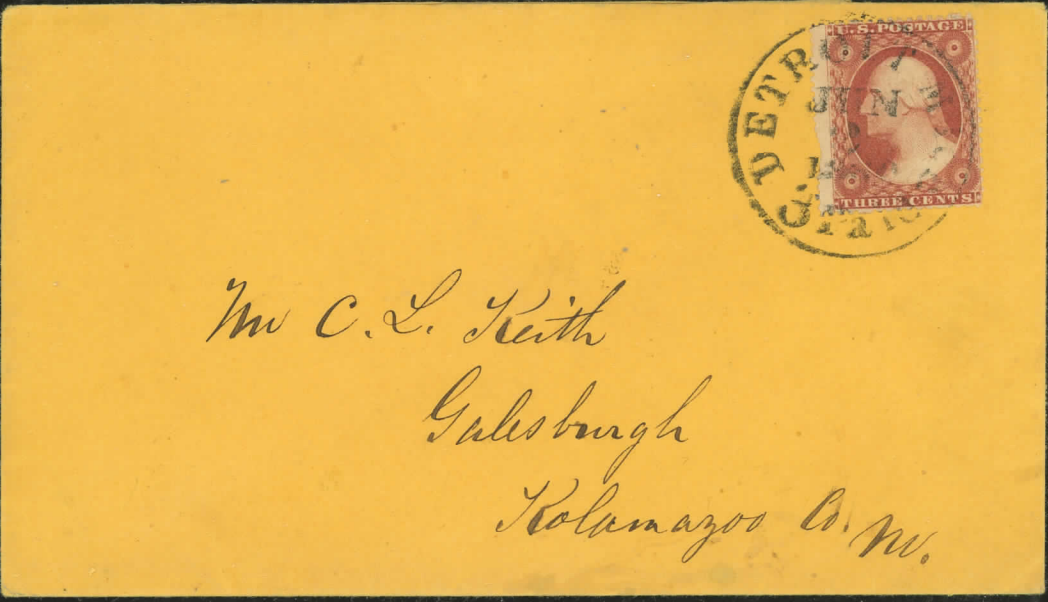 U.S. POSTAGE
THREE CENTS
DETROIT
JUN
Mr C. L. Keith
Galesburgh
Kolamazoo Co. M.